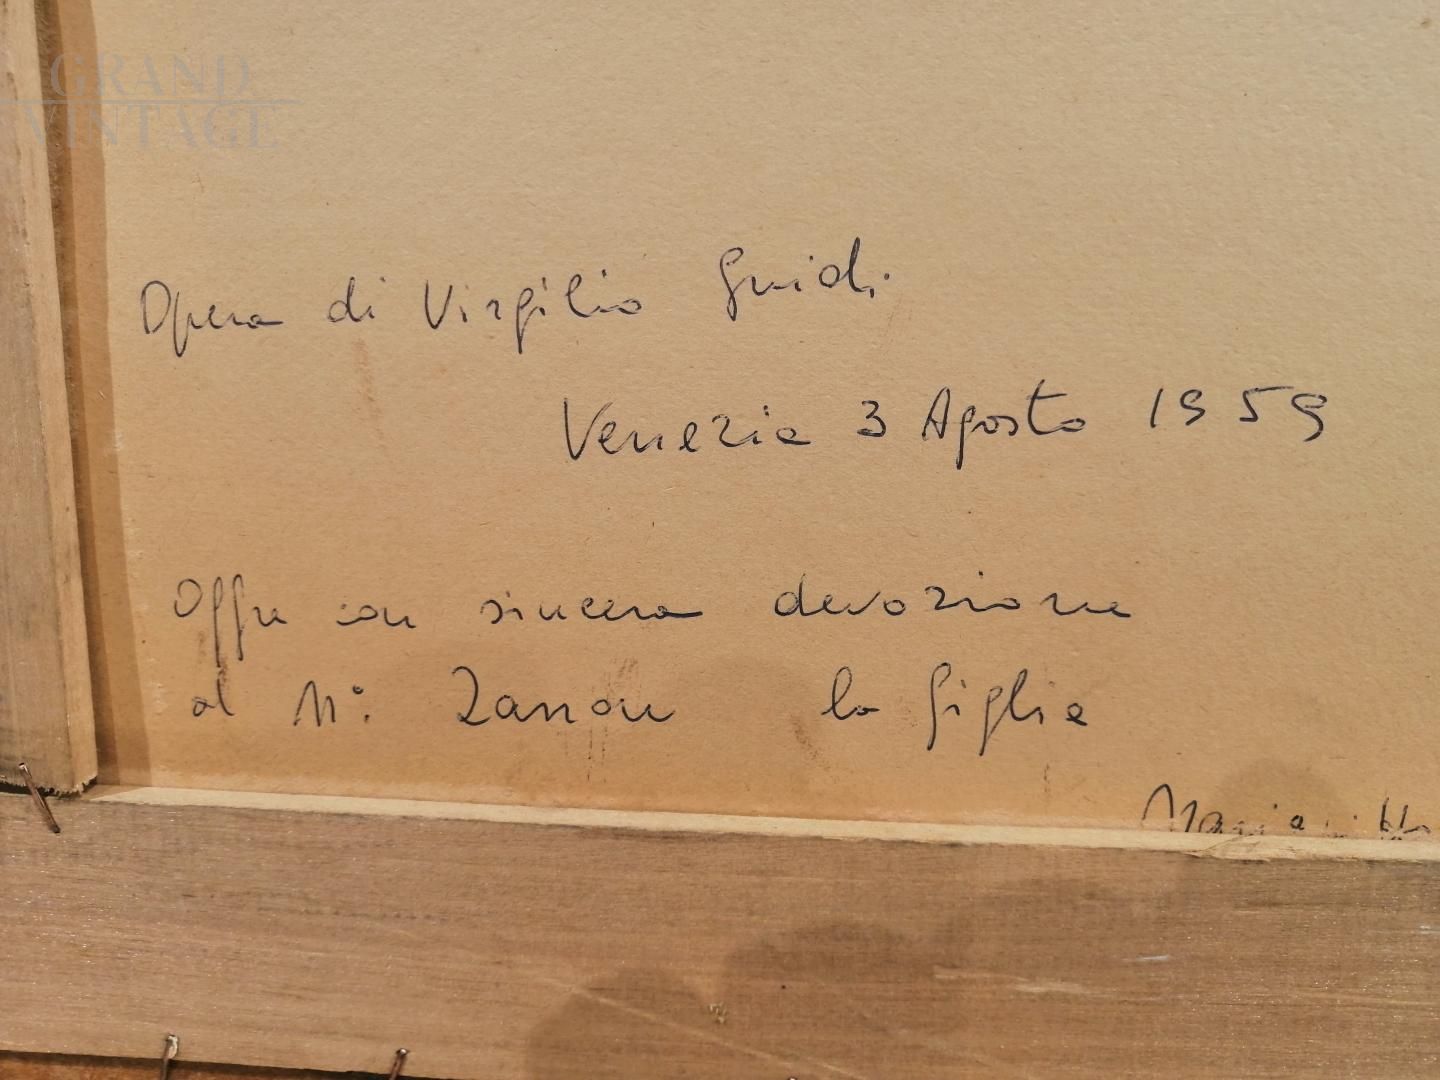 GRAND
VINTAGE
Opera di Virgilio Guidi
Venezia 3 Agosto 1959
Offre con sincera devozione
al M°. Zanon la figlia